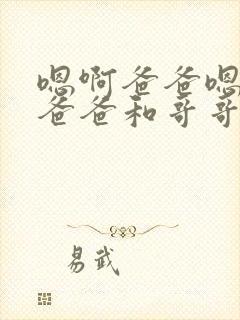 嗯啊爸爸嗯
爸爸和哥哥
易武